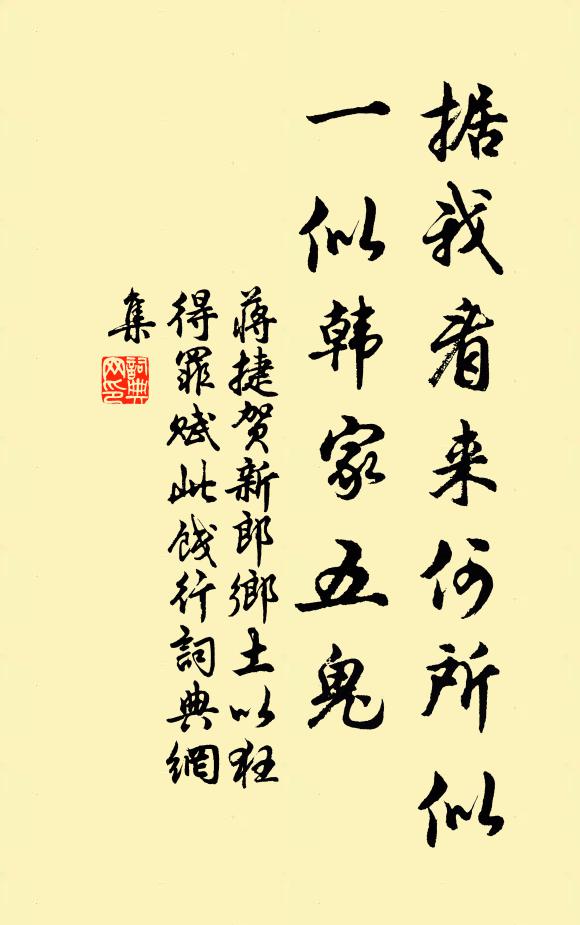 据我看来何所似
一似韩家五鬼
蒋捷贺新郎鄉土以狂
得罪赋此餞行詞典網
集
詞典
网印